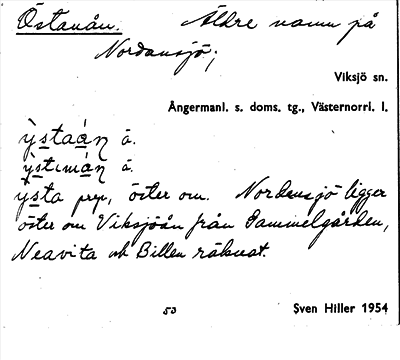 Östanån. Äldre namn på
Nordansjö;
Viksjö sn.
Ångermanl. s. doms. tg., Västernorrl. l.
ỳstaán å.
ỳstimán å.
ỳsta prep, öster om. Nordansjö ligger
öster om Viksjöån från Gammelgården,
Neavita och Billen räknat.
53
Sven Hiller 1954